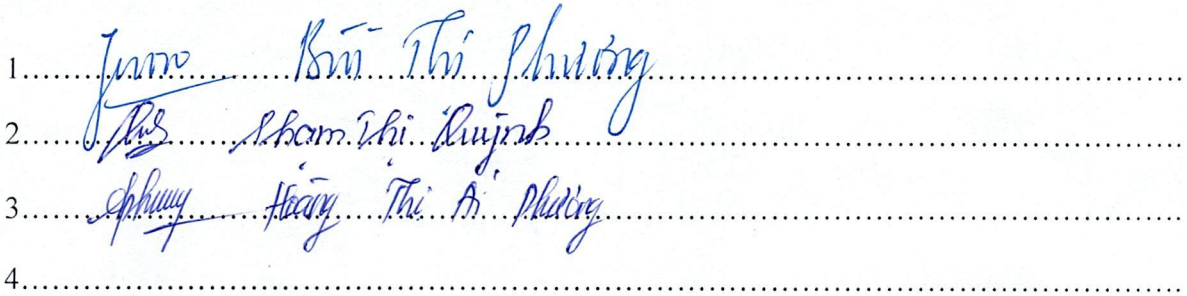 1. Bùi Thị Phương
2. Phạm Thị Quỳnh
3. Hoàng Thị Ái Phương
4.